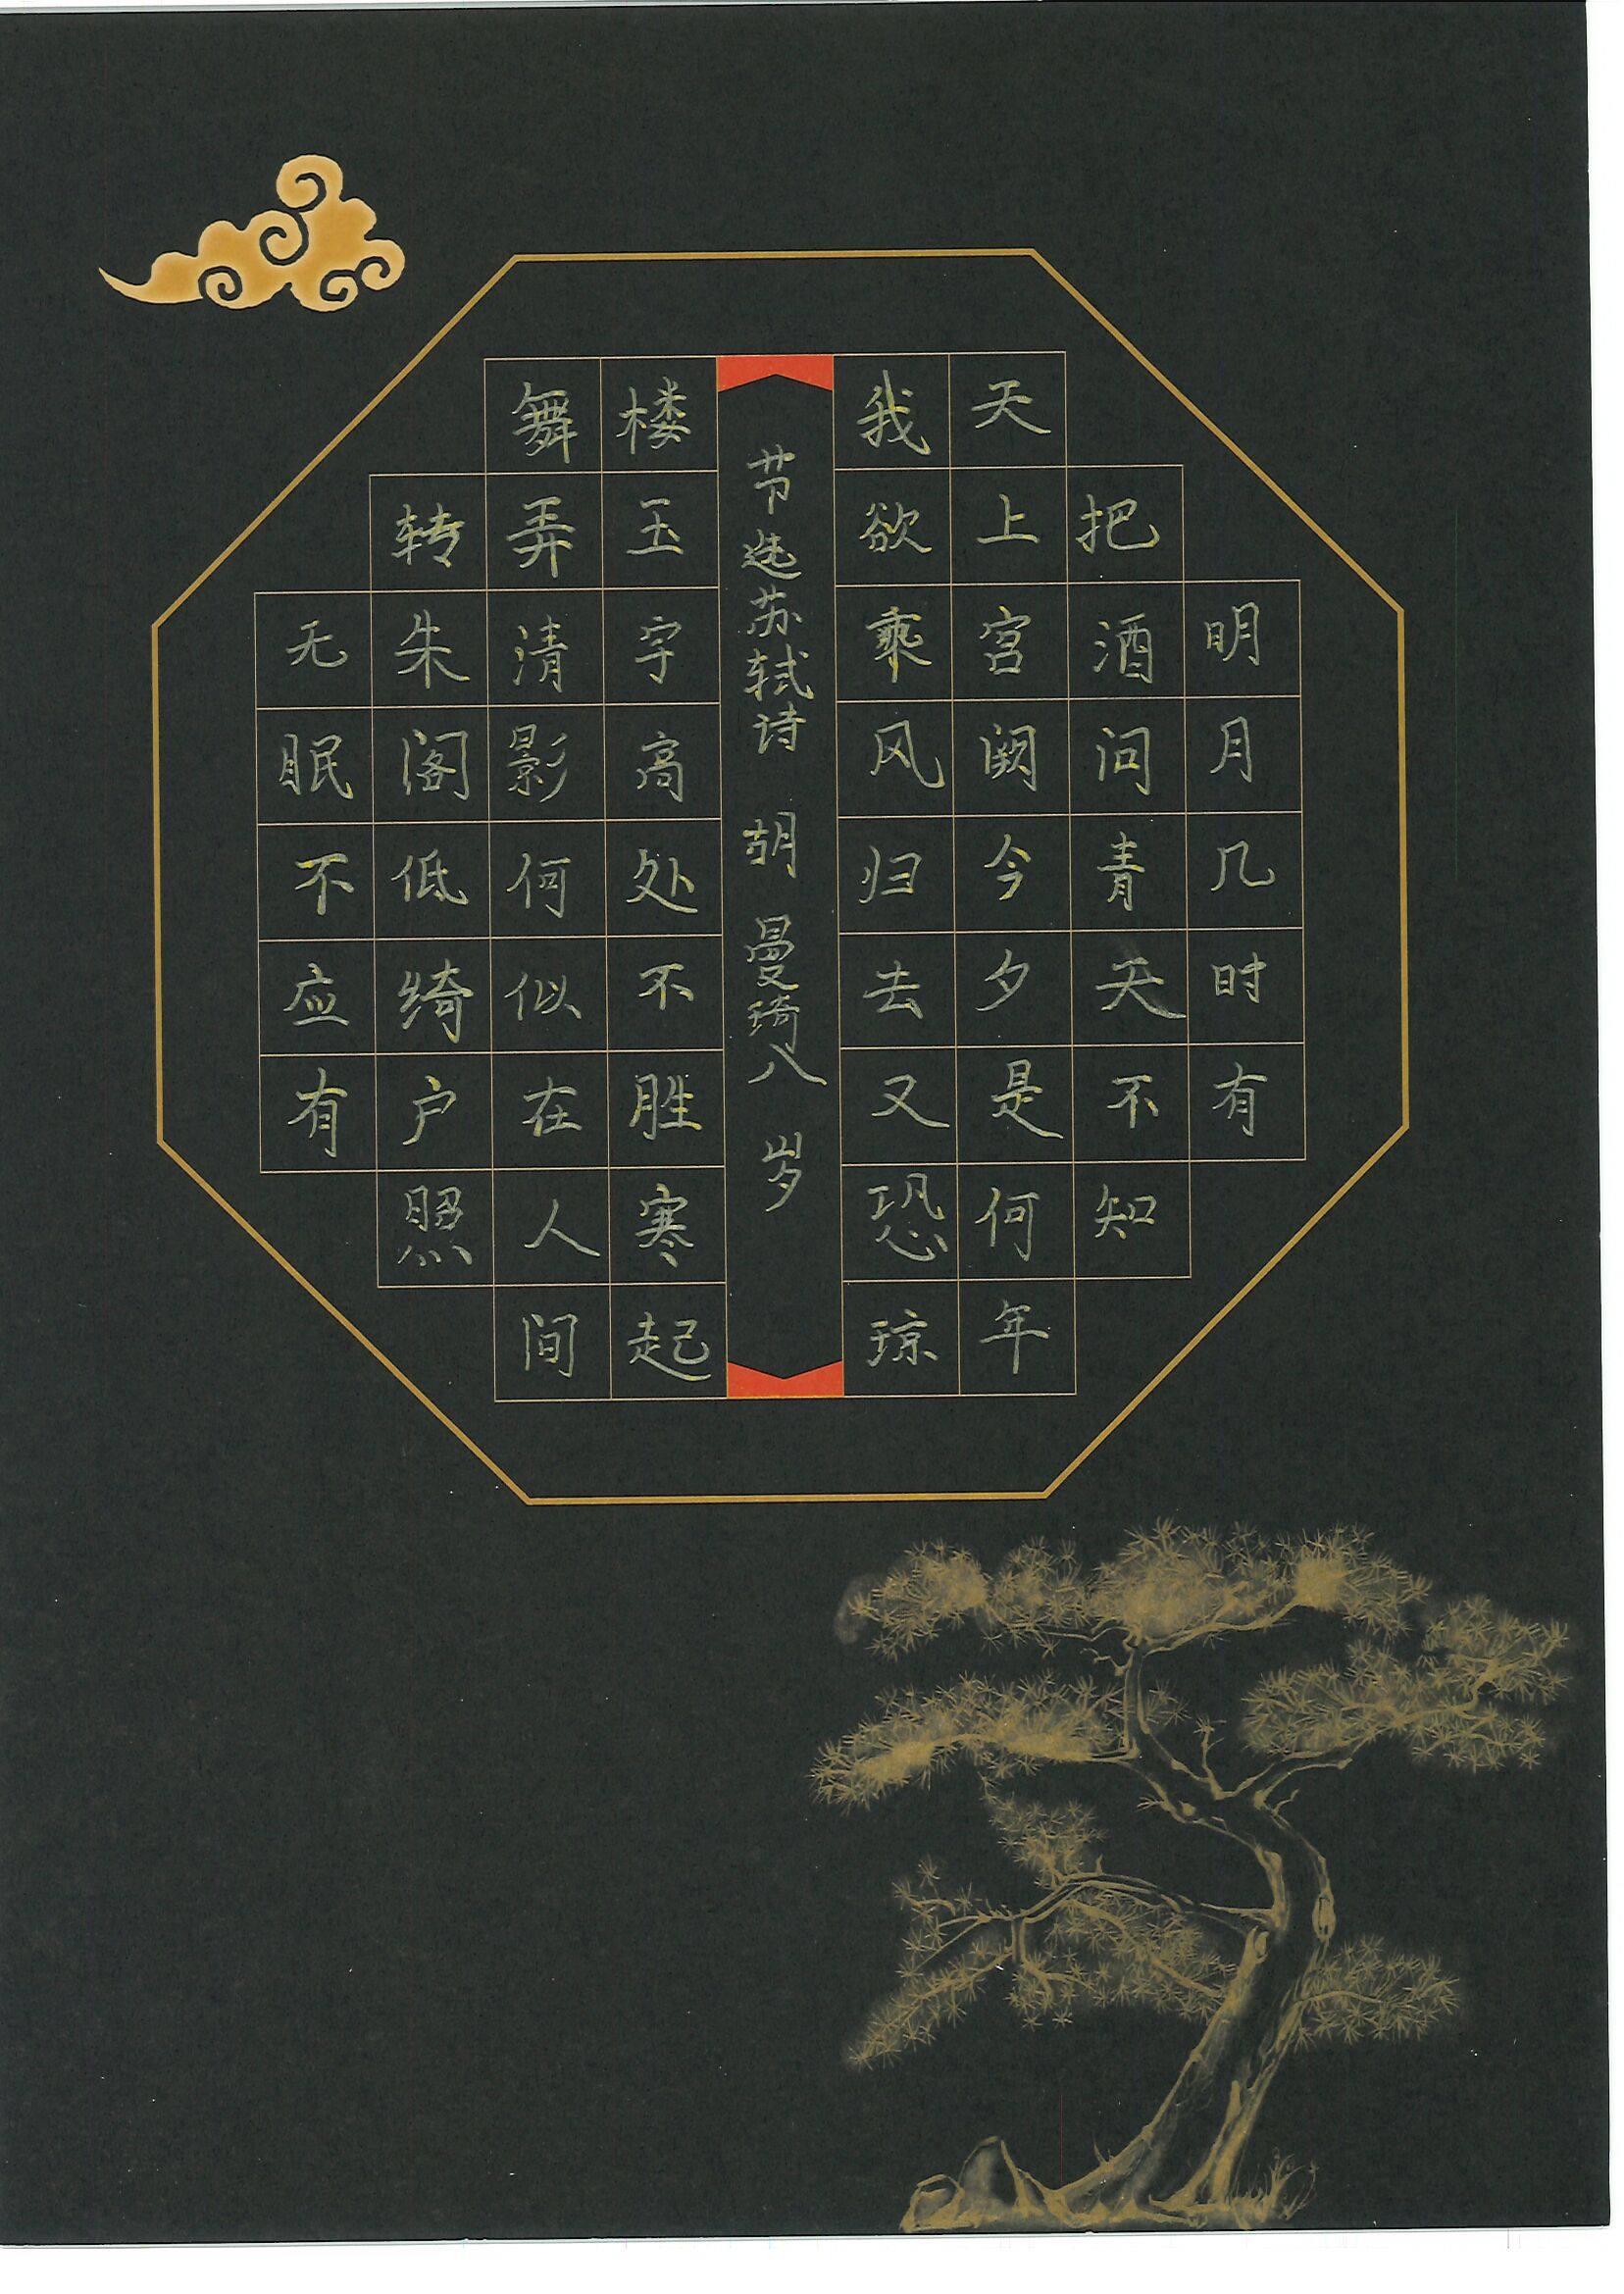 明月几时有
把酒问青天不知
天上宫阙今夕是何年
我欲乘风归去又恐琼
节选苏轼诗 胡曼琦八岁
楼玉宇高处不胜寒起
舞弄清影何似在人间
转朱阁低绮户照
无眠不应有